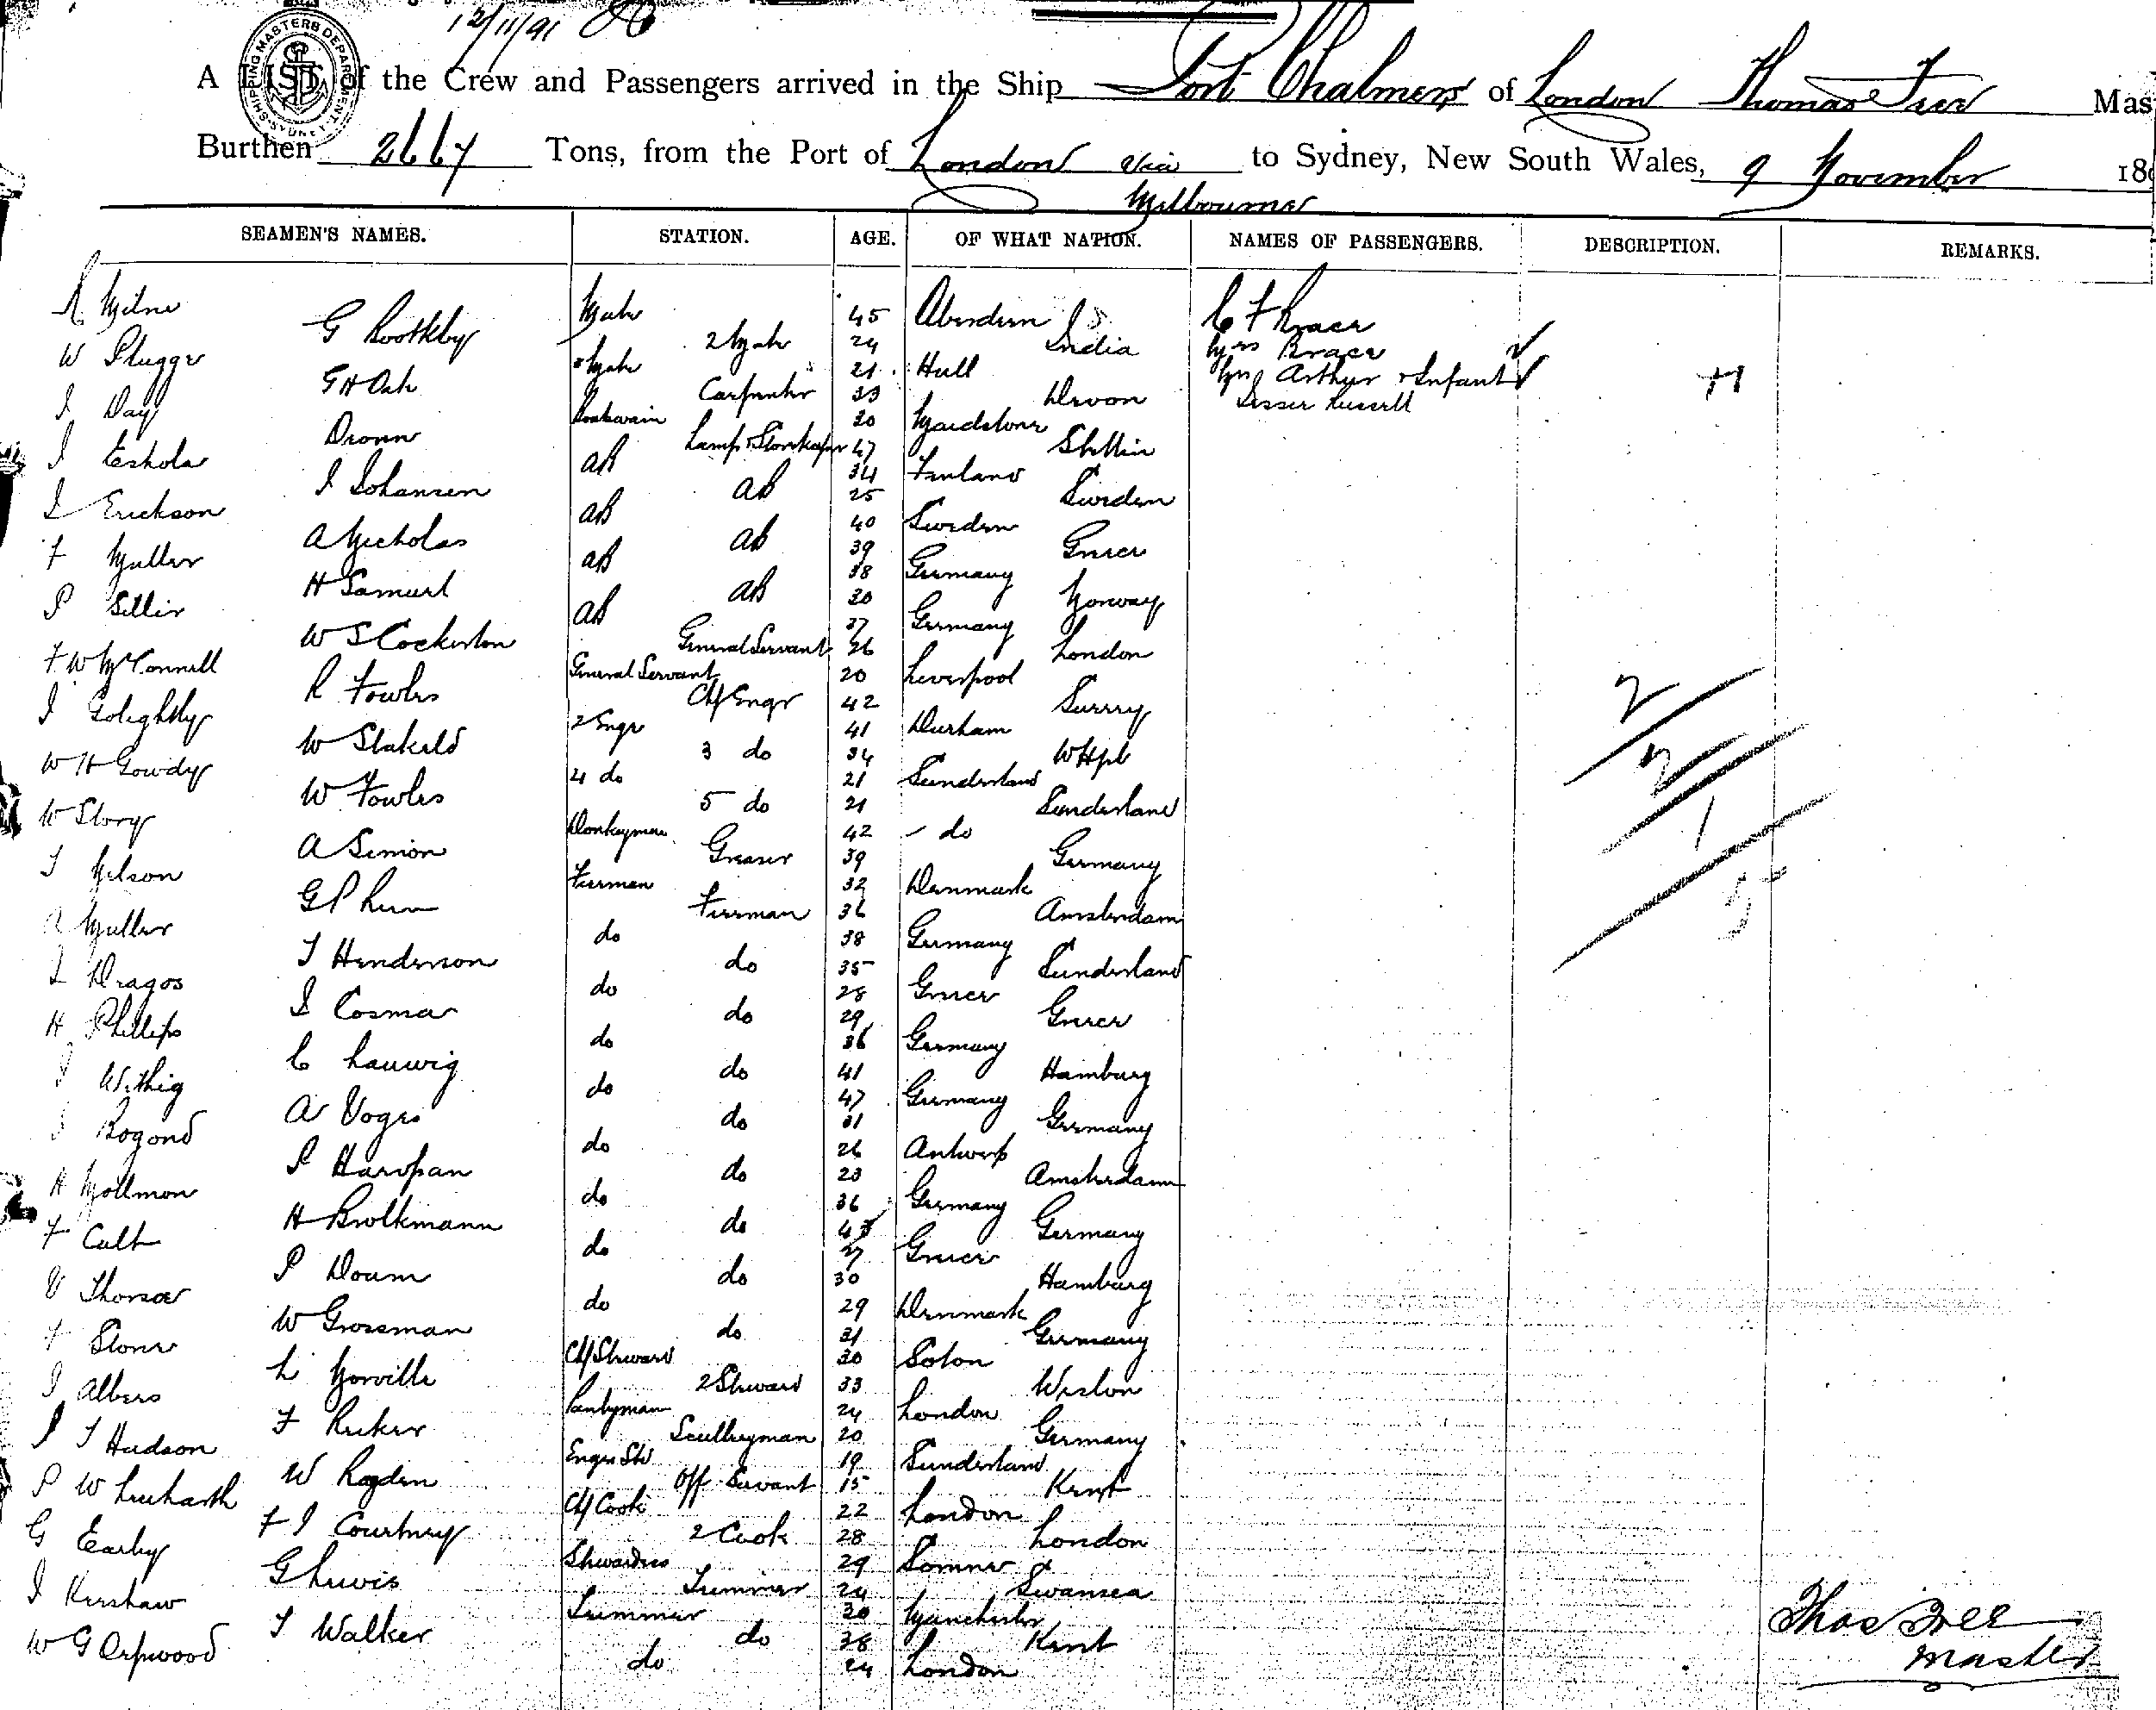 12/11/91
SHIPPING MASTERS DEPARTMENT SYDNEY
A LIST of the Crew and Passengers arrived in the Ship Port Chalmers of London Thomas Free Mas
Burthen 2667 Tons, from the Port of London via to Sydney, New South Wales, 9 November 18
Melbourne
SEAMEN'S NAMES. STATION. AGE. OF WHAT NATION. NAMES OF PASSENGERS. DESCRIPTION. REMARKS.
A Milne Mate 45 Aberdeen C F Brace
G Boothby 2 Mate 24 India Mrs Brace
W Plugge 3 Mate 21 Hull Mrs Arthur & Infant
G H Oak Carpenter 33 Devon Russell
J Day Boatswain 20 Maidstone
Dronn Lamp & Storekeeper 47 Stettin
J Eskola AB 34 Finland
J Johansen AB 25 Sweden
J Erickson AB 40 Sweden
A Nicholas AB 39 Greece
F Muller AB 38 Germany
H Samuel AB 30 Norway
P Sillir AB 37 Germany
W S Cockerton General Servant 26 London
F W McConnell General Servant 20 Liverpool
R Fowles Chf Engr 42 Surrey
J Golightly 2 Engr 41 Durham
W Stakeld 3 do 34 WHpl
W H Gowdy 4 do 21 Sunderland
W Fowles 5 do 21 Sunderland
W Story Donkeyman 42 do
A Simon Greaser 39 Germany
J Nelson Fireman 32 Denmark
G P Fireman 36 Amsterdam
A Muller do 38 Germany
J Henderson do 35 Sunderland
J Dragos do 28 Greece
J Cosma do 29 Greece
H Phillips do 36 Germany
C Lauwig do 41 Hamburg
J Withig do 47 Germany
A Voges do 31 Germany
J Bogond do 26 Antwerp
P Haropan do 23 Amsterdam
H Mollmon do 36 Germany
H Brolkmann do 43 Germany
F Calt do 27 Greece
P Doum do 30 Hamburg
V Thorsoe do 29 Denmark
W Grossman do 31 Germany
F Stone Chf Steward 30 Soton
L Norville 2 Steward 33 Weston
J Albers Pantryman 24 London
F Ruker Sculleryman 20 Germany
J T Hudson Engrs Std 19 Sunderland
W Rogden Off Servant 15 Kent
P W Chf Cook 22 London
F J Courtney 2 Cook 28 London
G Earby Stewardess 29
G Lewis Trimmer 24 Swansea
J Kershaw Trimmer 20 Manchester
J Walker do 38 Kent
W G Orpwood do 24 London
2
2
1
5
Thos Free
Master